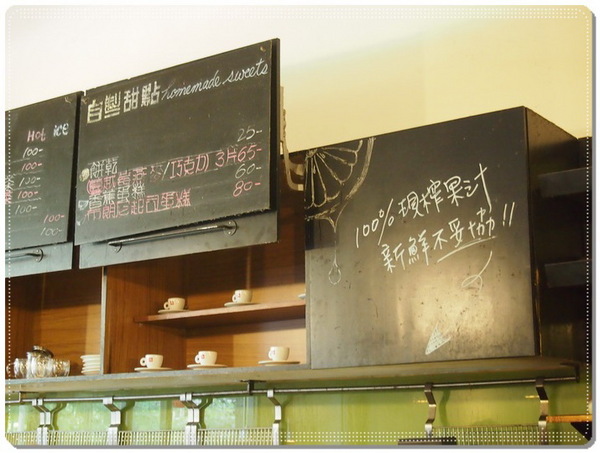 Hot ice
100-
100-
100-
100-
100-
100-
自製甜點 homemade sweets
25-
餅乾 /巧克力 3片65-
香蕉蛋糕 60-
起司蛋糕 80-
100% 現榨果汁
新鮮不妥協!!